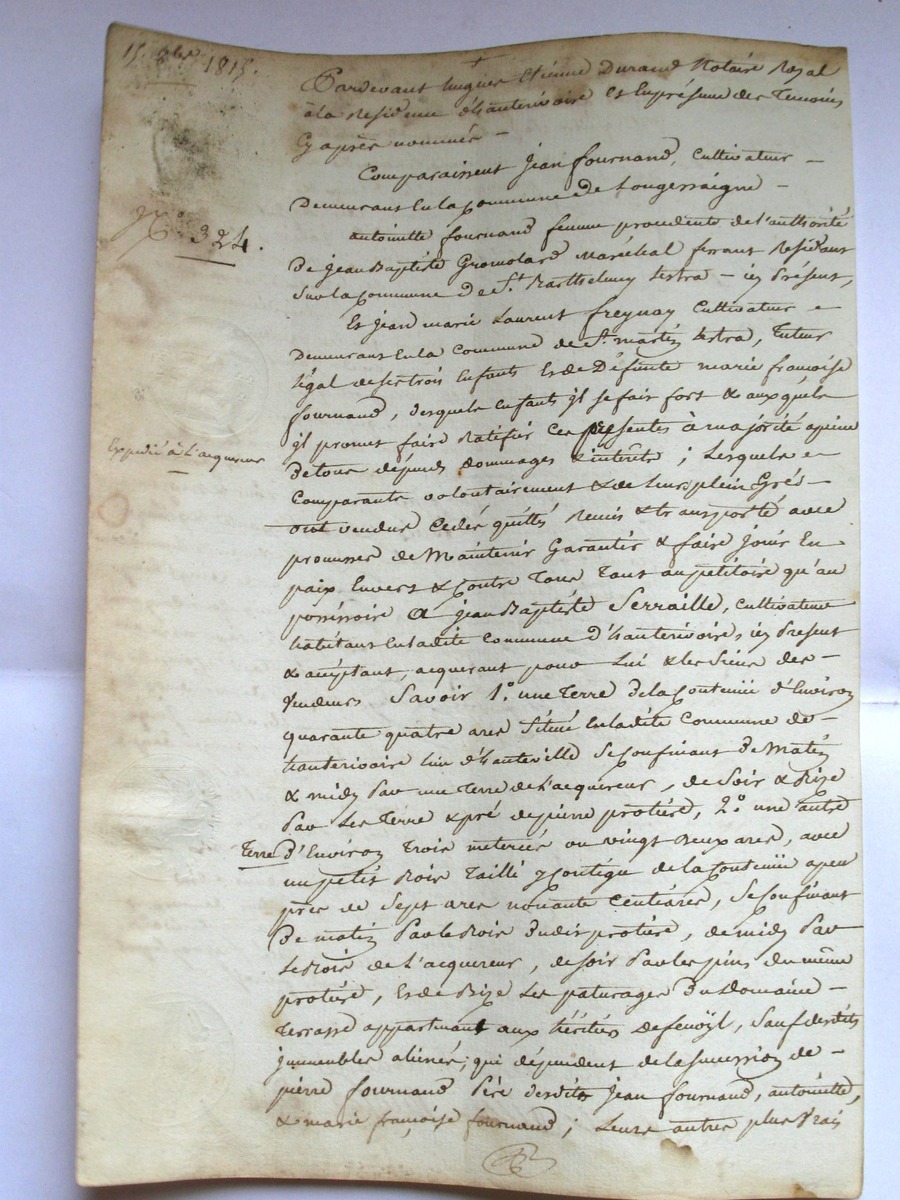 15. 8bre 1815.
Pardevant hugues Etienne Durand Notaire Royal
à la Residence d'hauterivoire et En présence des Temoins
Cy après nommés —
Comparaissent Jean fournand, Cultivateur —
Demeurant En la Commune de Longessaigne —
antoinette fournand femme procedente de l'authorité
De jean Baptiste Gromolard Maréchal ferrant Residant
Sur la Commune de St. Barthelemy Lestra — icy Présent,
Et jean marie Laurent freynay Cultivateur —
Demeurant En la Commune de St. martin Lestra, Tuteur
légal de ses trois Enfants Et de Défunte marie françoise
fournand, desquels enfants il se fait fort & auxquels
il promet faire Ratifier Ces présentes à majorité apeine
De tous dépends dommages & intérets ; Lesquels
Comparants volontairement & de leurs plein Grés —
ont vendus Cedés quittés Remis & transporté avec
promesses de Maintenir Garantir & faire Jouir En
paix Envers & Contre Tous Tant au petitoire qu'au
possessoire a jean Baptiste Serraille, Cultivateur
habitant En ladite Commune d'hauterivoire, icy Present
& acceptant, acquerant pour Lui & les Siens des —
Vendeurs Savoir 1.° une Terre de la Contenüe d'Environ
quarante quatre ares Située En ladite Commune de —
hauterivoire lieu d'hauteville Se Confinant de Matin
& midy Par une Terre de L'acquereur, de Soir & Bize
Par Les Terre & pré de pierre protière, 2.° une autre
Terre d'Environ Trois meterées ou vingt deux ares, avec
un petit Bois Taillï y Contigu de la Contenüe a peu
près de Sept ares nonante Centiares, Se Confinant
De matin Par le Bois dudit protière, de midy Par
Le Bois de L'acquereur, de soir Par les pins du même
protière, Et de Bize Les paturages du Domaine —
Terrasse appartenant aux héritiers defenöyl, Sauf desdits
immeubles aliénés ; qui dépendent de la succession de —
pierre fournand Père desdits Jean fournand, antoinette,
& marie françoise fournand ; Leurs autres plus Vrais
N.° 324.
Expedié à L'acquereur